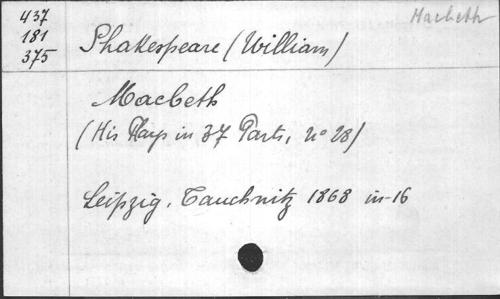 437
181
375
Macbeth
Shakespeare (William)
Macbeth
(His Plays in 37 Parts, no 28)
Leipzig, Tauchnitz 1868 in-16